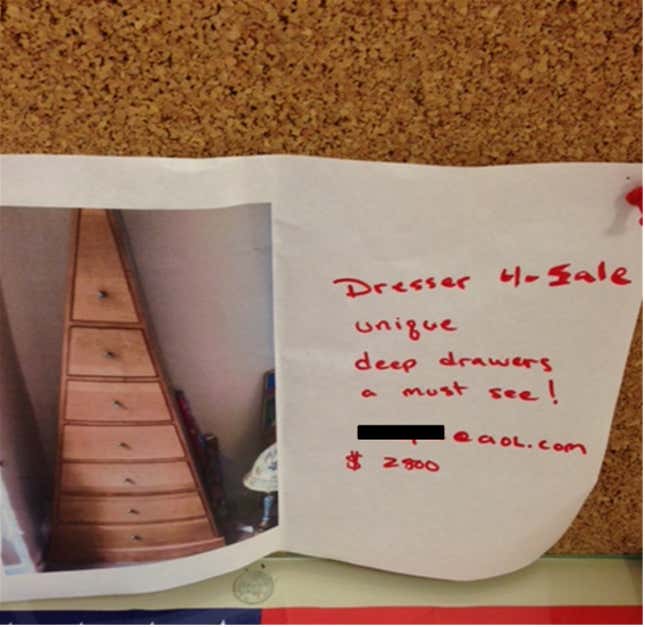 Dresser 4- Sale
unique
deep drawers
a must see!
@aol.com
$ 2800